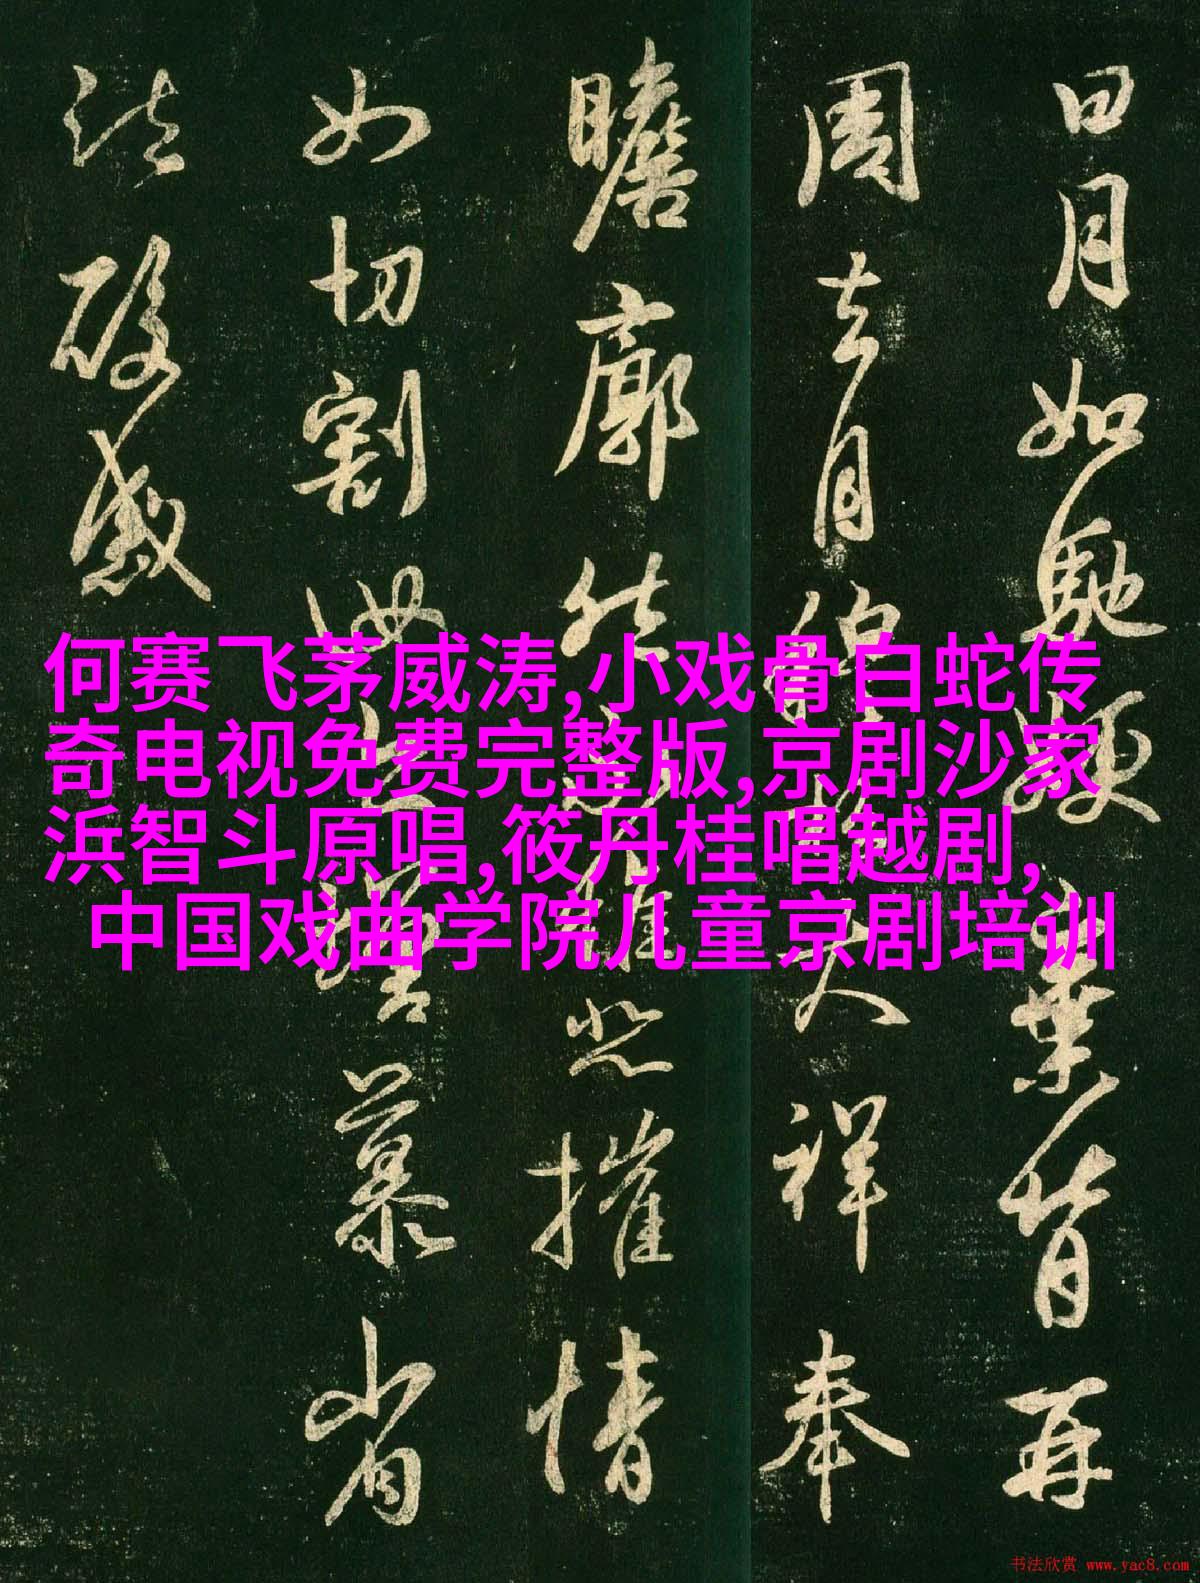 日月如馳嫂棄背再
周去月穆松大祥奉
瞻廓然永惟悲摧情
如切割慕省
酸感
何赛飞茅威涛,小戏骨白蛇传
奇电视免费完整版,京剧沙家
浜智斗原唱,筱丹桂唱越剧,
中国戏曲学院儿童京剧培训
书法欣赏 www.yac8.com